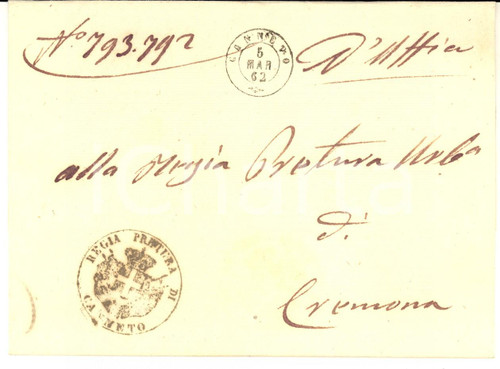 Nº 793.792
CANNETO
5
MAR
62
D'Uffizio
alla Regia Pretura Urba
di
Cremona
REGIA PRETURA DI
CANNETO
iCharta